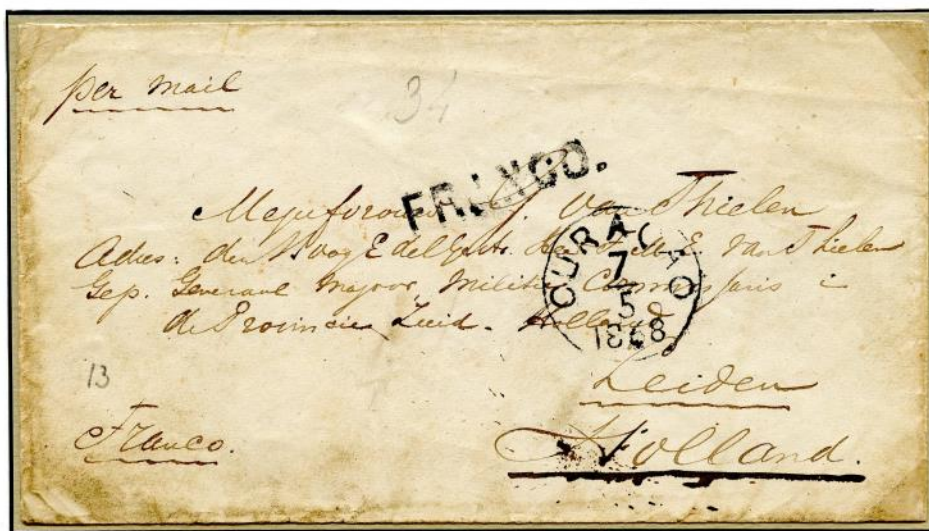 per mail
34
FRANCO.
Mejufvrouw J. Van Thielen
Adres: den HoogEdelGestr. Heer E. Van Thielen
Gep. Generaal Majoor Militie Commissaris in
de Provincie Zuid-Holland
CURAÇAO
7
5
1868
13
Leiden
Franco.
Holland.